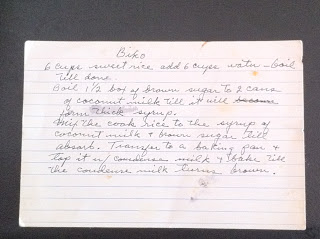 Biko
6 cups sweet rice, add 6 cups water - boil
till done.
Boil 1 1/2 box of brown sugar to 2 cans
of coconut milk till it will become
form thick syrup.
Mix the cook rice to the syrup of
coconut milk & brown sugar till
absorb. Transfer to a baking pan &
top it w/ condense milk & bake till
the condense milk turns brown.